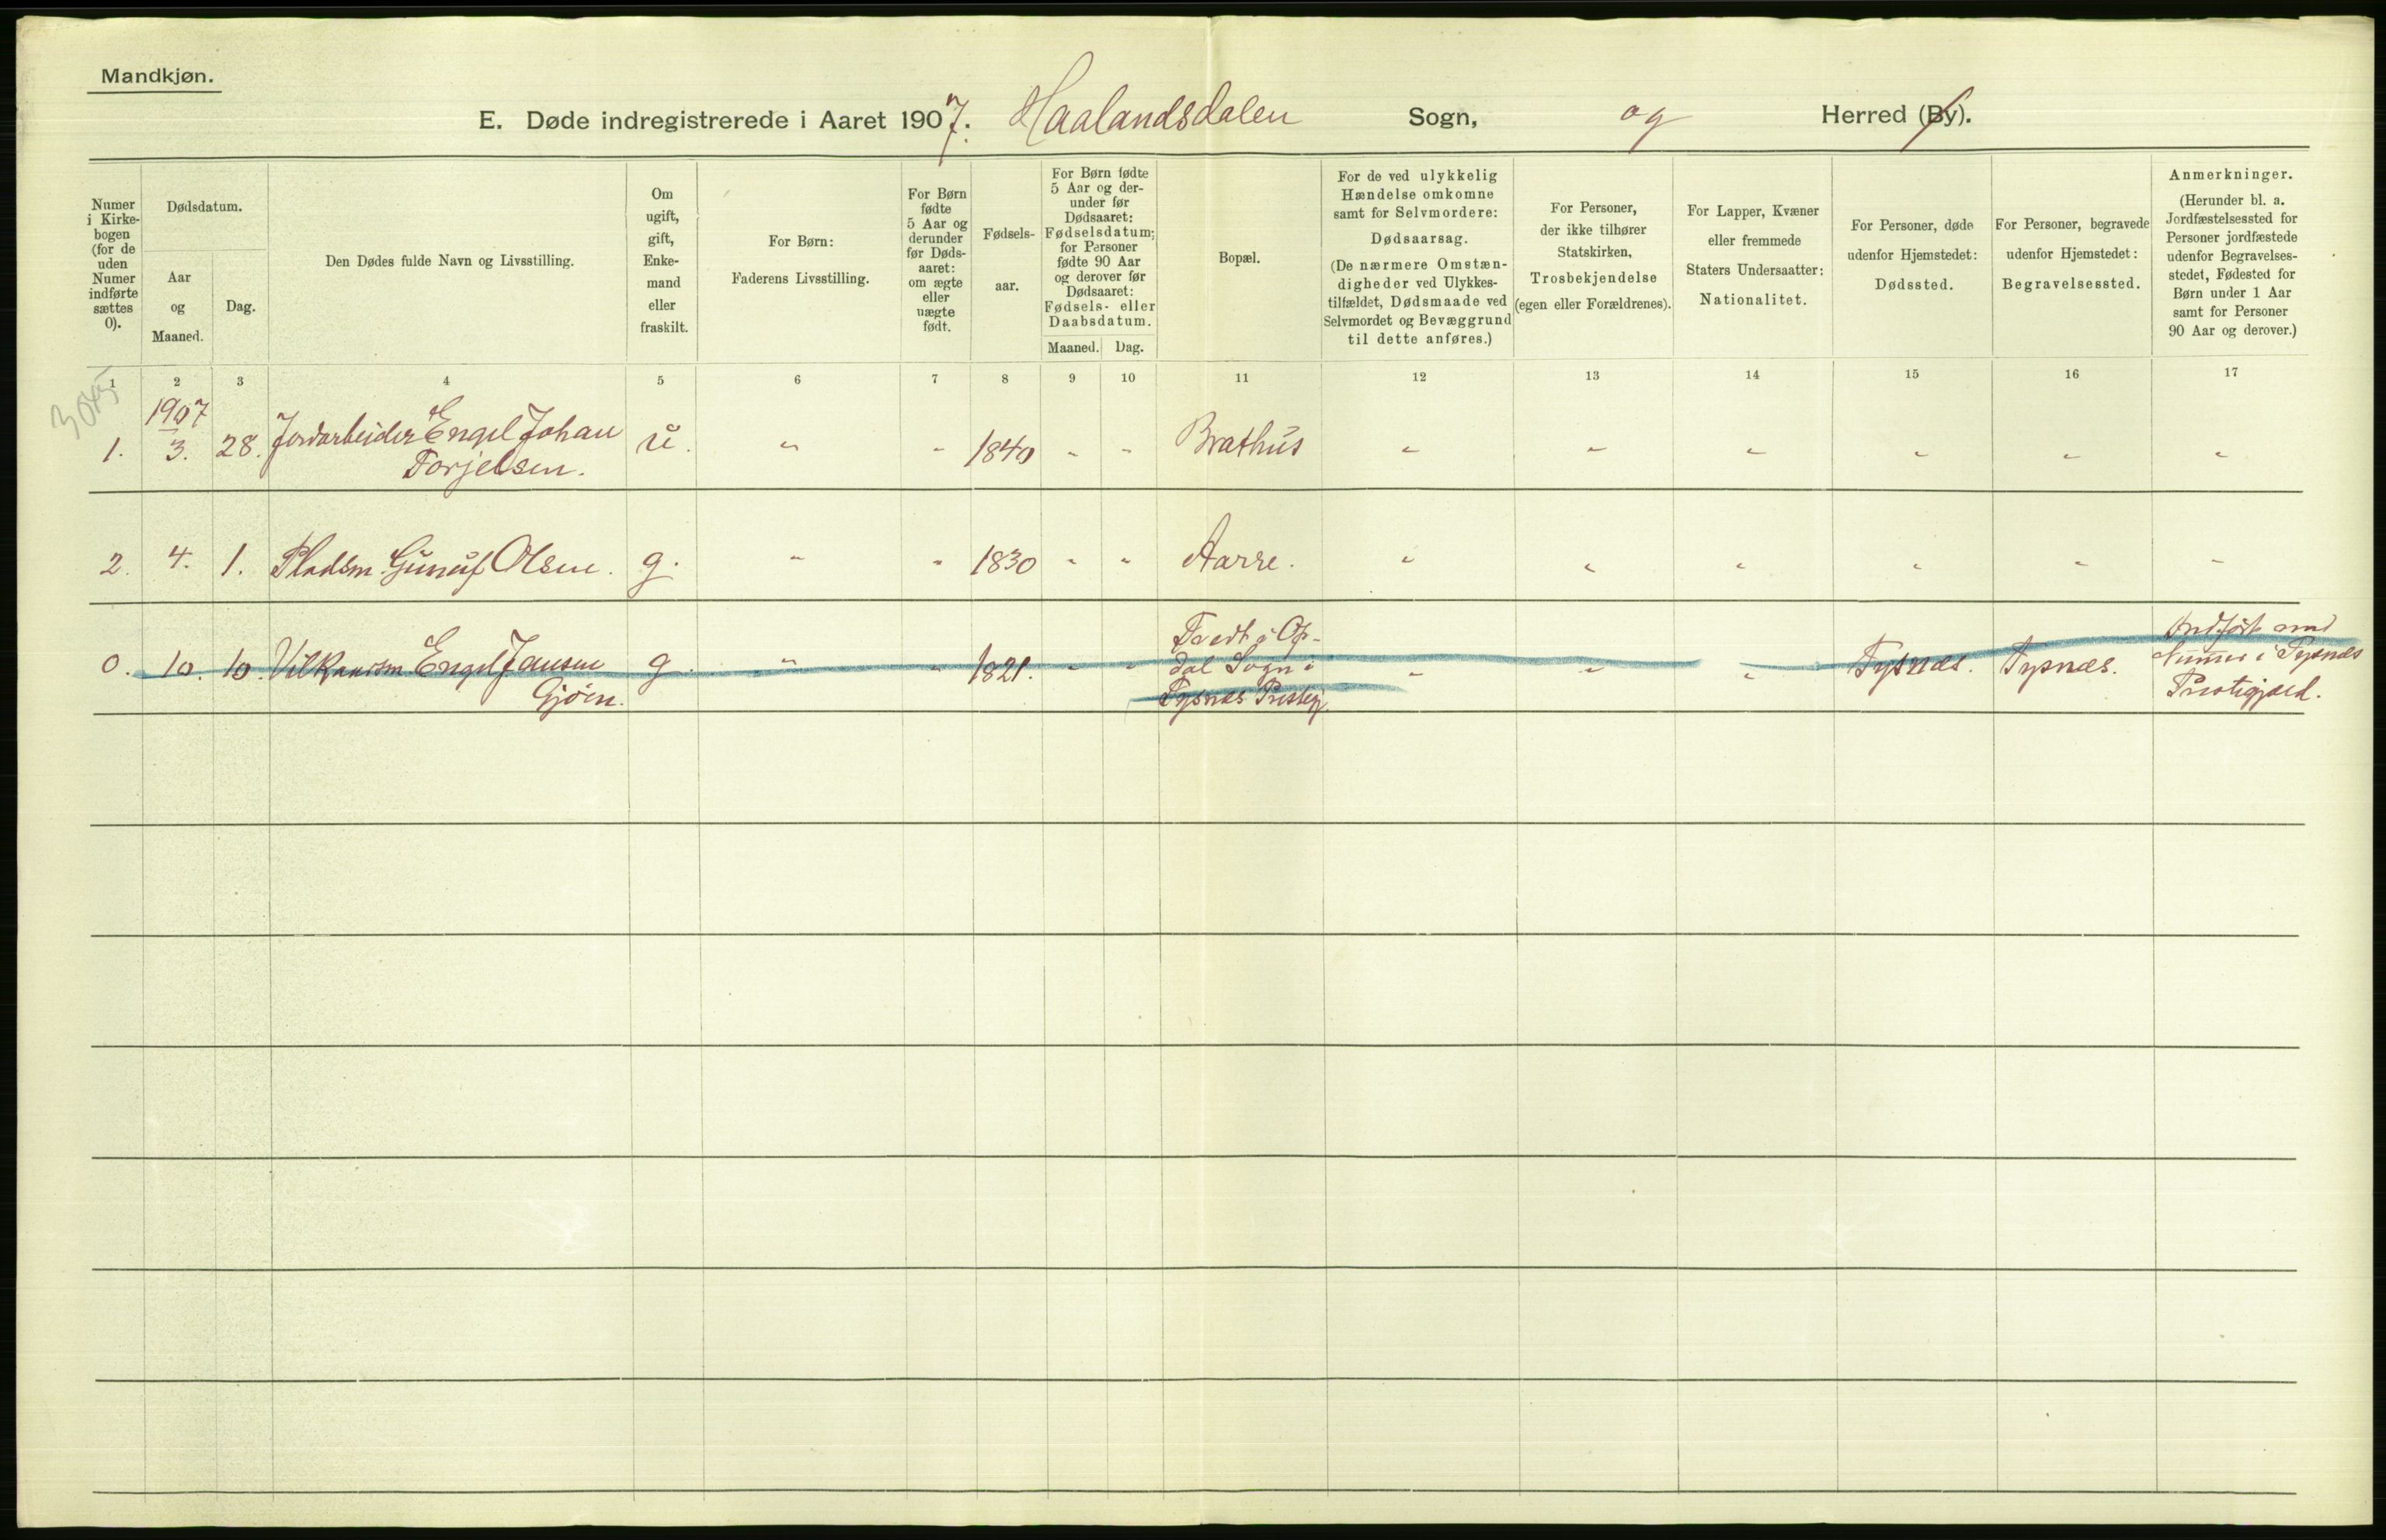 Mandkjøn.
E. Døde indregistrerede i Aaret 1907. Haalandsdalen Sogn, og Herred (By).
Numer i Kirke-bogen (for de uden Numer indførte sættes 0).
Dødsdatum.
Aar og Maaned.
Dag.
Den Dødes fulde Navn og Livsstilling.
Om ugift, gift, Enke-mand eller fraskilt.
For Børn:
Faderens Livsstilling.
For Børn fødte 5 Aar og derunder før Døds-aaret: om ægte eller uægte født.
Fødsels-aar.
For Børn fødte 5 Aar og der-under før Dødsaaret: Fødselsdatum; for Personer fødte 90 Aar og derover før Dødsaaret: Fødsels- eller Daabsdatum.
Maaned. Dag.
Bopæl.
For de ved ulykkelig Hændelse omkomne samt for Selvmordere:
Dødsaarsag.
(De nærmere Omstæn-digheder ved Ulykkes-tilfældet, Dødsmaade ved Selvmordet og Bevæggrund til dette anføres.)
For Personer, der ikke tilhører Statskirken,
Trosbekjendelse
(egen eller Forældrenes).
For Lapper, Kvæner eller fremmede Staters Undersaatter:
Nationalitet.
For Personer, døde udenfor Hjemstedet:
Dødssted.
For Personer, begravede udenfor Hjemstedet:
Begravelsessted.
Anmerkninger.
(Herunder bl. a. Jordfæstelsessted for Personer jordfæstede udenfor Begravelses-stedet, Fødested for Børn under 1 Aar samt for Personer 90 Aar og derover.)
1 2 3 4 5 6 7 8 9 10 11 12 13 14 15 16 17
1907
1. 3. 28. Jordarbeider Engel Johan u. " " 1840 " " Brathus " " " " " "
Torjelsen.
2. 4. 1. Pladsm. Gunuf Olsen. g. " " 1830 " " Aarre. " " " " " "
0. 10. 10. Engel Jansen g. " " 1821. " " Tvedt i Op- " " " Tysnæs. Tysnæs. Indført med
Gjøen. dal Sogn i Numer i Tysnæs
Tysnæs Prestegj. Prestegjæld.